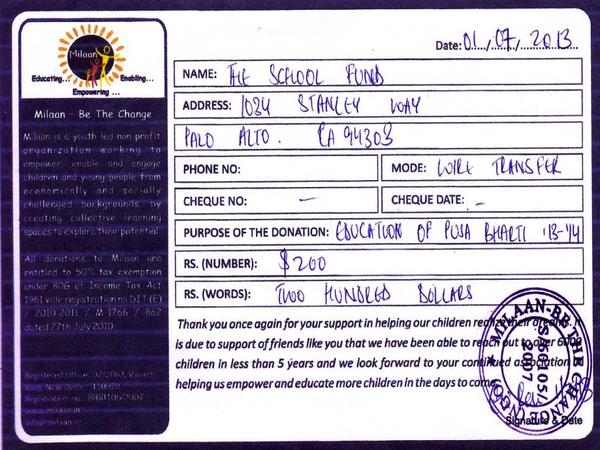 Milaan
Educating... Enabling...
Empowering ...
Milaan - Be The Change
Milaan is a youth led non-profit
organization working to
empower, enable and engage
children and young people from
economically and socially
challenged backgrounds by
creating collective learning
spaces to explore their potential.
All donations to Milaan are
entitled to 50% tax exemption
under 80G of Income Tax Act
1961 vide registration no DIT (E)
/ 2010 2011 / M 1766 / 862
dated 27th July 2010.
Date: 01, 07, 2013
NAME: THE SCHOOL FUND
ADDRESS: 1034 STANLEY WAY
PALO ALTO. CA 94303
PHONE NO: MODE: WIRE TRANSFER
CHEQUE NO: — CHEQUE DATE: -
PURPOSE OF THE DONATION: EDUCATION OF PUJA BHARTI '13-'14
RS. (NUMBER): $200
RS. (WORDS): TWO HUNDRED DOLLARS
Thank you once again for your support in helping our children realize their dreams. It
is due to support of friends like you that we have been able to reach out to over 6000
children in less than 5 years and we look forward to your continued association in
helping us empower and educate more children in the days to come.
MILAAN-BE THE CHANGE (NGO)
S/60105/
2007
Signature & Date